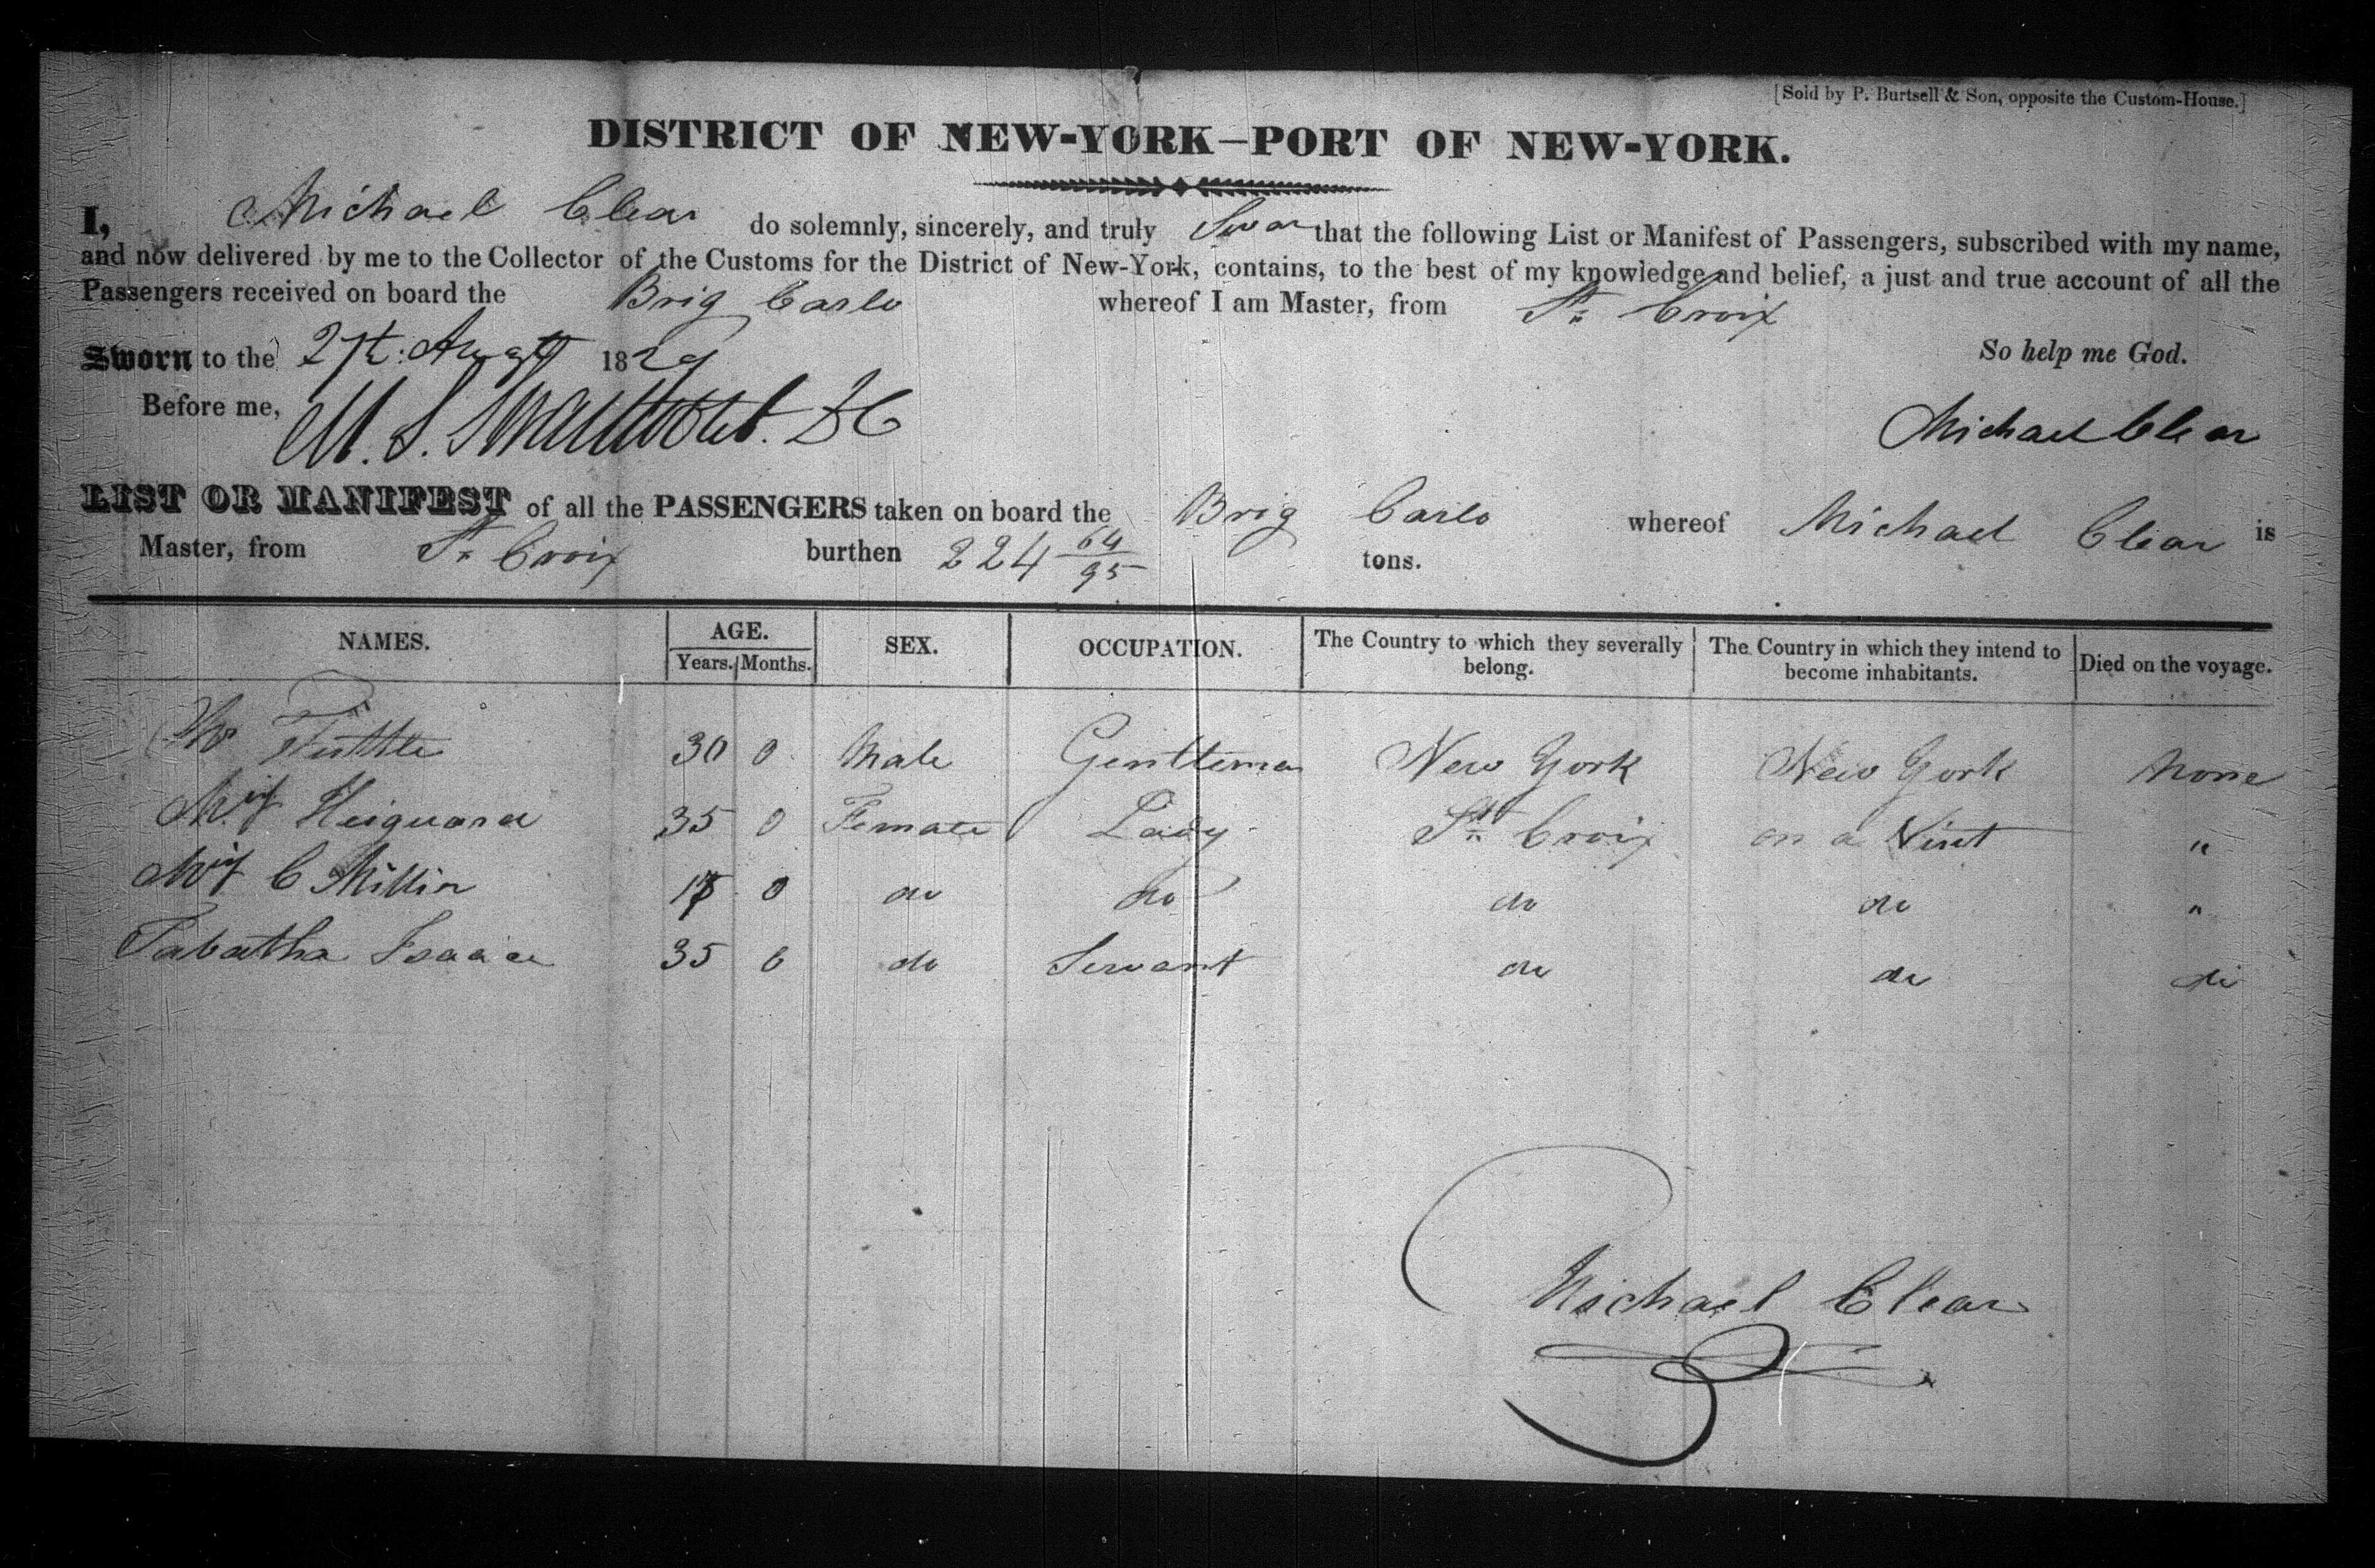 [Sold by P. Burtsell & Son, opposite the Custom-House.]
DISTRICT OF NEW-YORK—PORT OF NEW-YORK.
I, Michael Clear do solemnly, sincerely, and truly Swear that the following List or Manifest of Passengers, subscribed with my name,
and now delivered by me to the Collector of the Customs for the District of New-York, contains, to the best of my knowledge and belief, a just and true account of all the
Passengers received on board the Brig Carlo whereof I am Master, from St. Croix
Sworn to the 27th: Augst 1829 So help me God.
Before me, M. S. Swartwout. DC Michael Clear
LIST OR MANIFEST of all the PASSENGERS taken on board the Brig Carlo whereof Michael Clear is
Master, from St. Croix burthen 224 64/95 tons.
NAMES. AGE. Years. Months. SEX. OCCUPATION. The Country to which they severally belong. The Country in which they intend to become inhabitants. Died on the voyage.
Mr Tuttle 30 0 Male Gentleman New York New York None
35 0 Female Lady St. Croix on a Visit "
C Millin 0 do do do do "
Tabatha Isaacs 35 6 do Servant do do do
Michael Clear